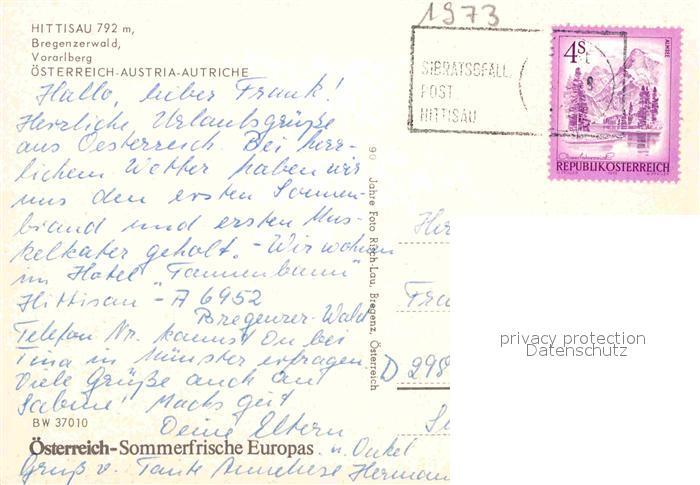 HITTISAU 792 m,
Bregenzerwald,
Vorarlberg
ÖSTERREICH-AUSTRIA-AUTRICHE
Hallo, lieber Frank!
Herzliche Urlaubsgrüße
aus Oesterreich. Bei herr-
lichem Wetter haben wir
uns den ersten Sonnen-
brand und ersten Mus-
kelkater geholt. - Wir wohnen
im Hotel "Tannenbaum"
Hittisau - A 6952
Bregenzer-Wald
Telefon Nr. kannst Du bei
Tina in Münster erfragen.
Viele Grüße auch an
Sabine! Machs gut
Deine Eltern
BW 37010
Österreich-Sommerfrische Europas
u. Onkel
Gruß v. Tante Annehese Hermann
90 Jahre Foto Risch-Lau, Bregenz, Österreich
1973
SIBRATSGFÄLL,
POST
HITTISAU
4S
ALMSEE
REPUBLIK ÖSTERREICH
Her
Fra
D 298
privacy protection
Datenschutz